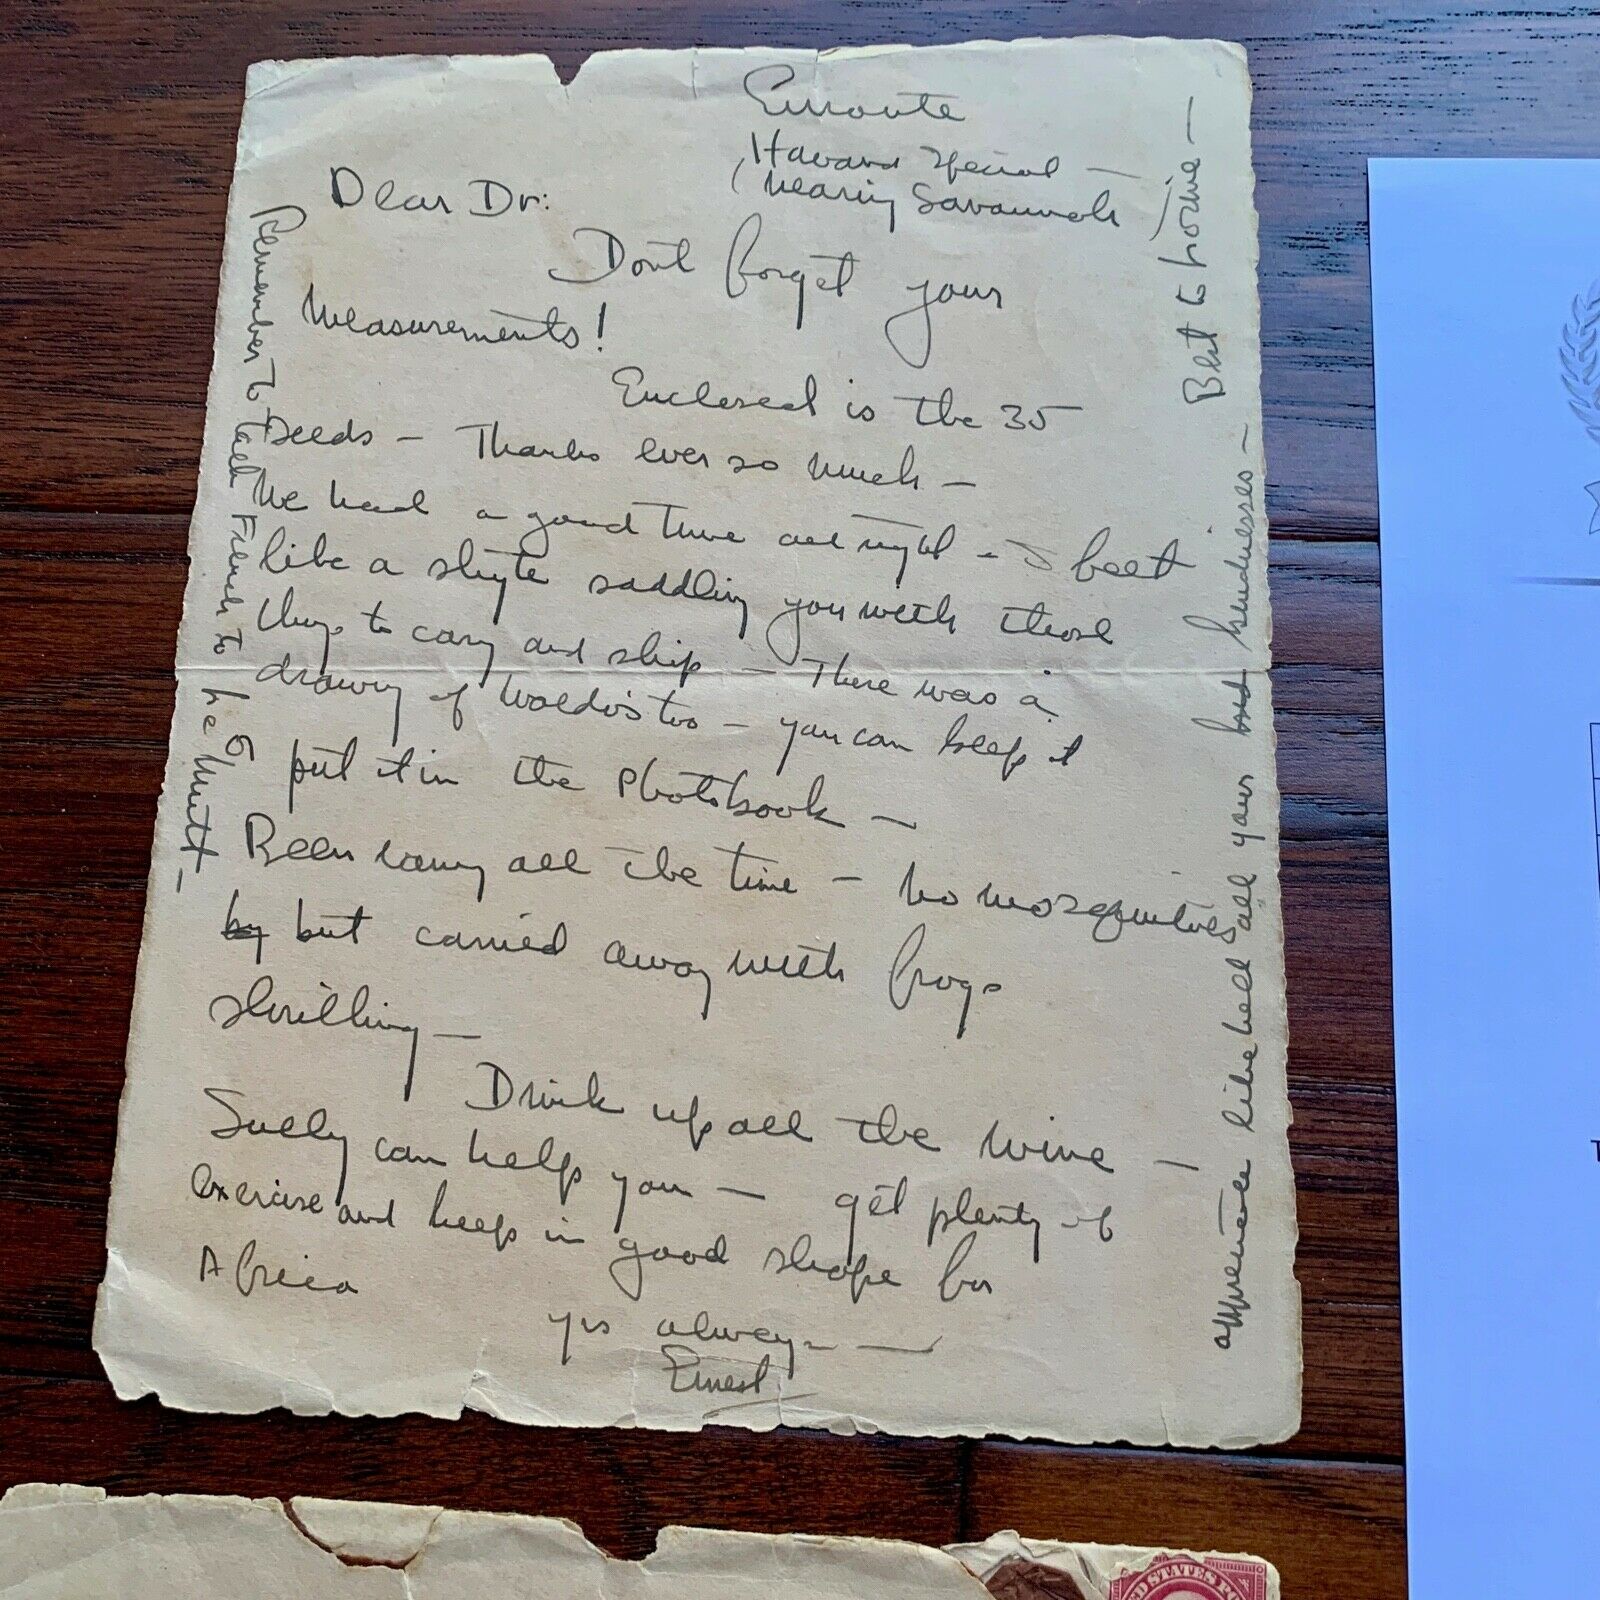 Enroute
Havana Special —
(Nearing Savannah)
Dear Dr:
Dont forget your
Measurements!
Enclosed is the 35
Deeds — Thanks ever so much —
We had a good time all right — I feel
like a shyte saddling you with those
things to carry and ship — There was a
drawing of Waldo's too — you can keep it
put it in the Photobook —
Been rainy all the time — No mosquitoes
by but carried away with frogs
shrilling —
Drink up all the wine —
Sully can help you — get plenty of
exercise and keep in good shape for
Africa
yrs always —
Ernest
Remember to tell French to
he Mutt —
appreciate like hell all your kindnesses —
Best to Lorine —
ED STATES PO